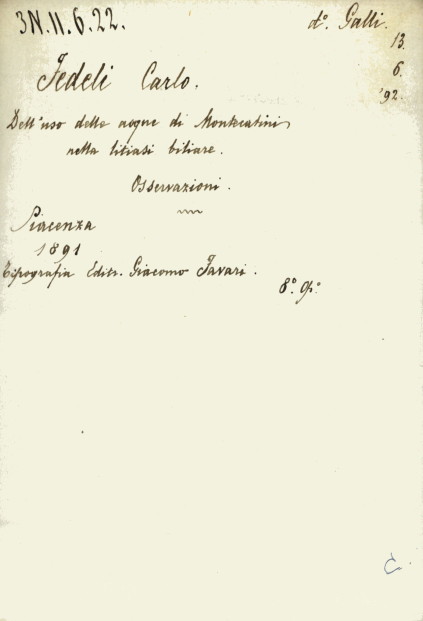 3N.11.6.22.
d.º Galli.
13.
6.
'92.
Fedeli Carlo.
Dell'uso delle acque di Montecatini
nella litiasi biliare.
Osservazioni.
Piacenza
1891
Tipografia Editr. Giacomo Favari.
8.º
C.